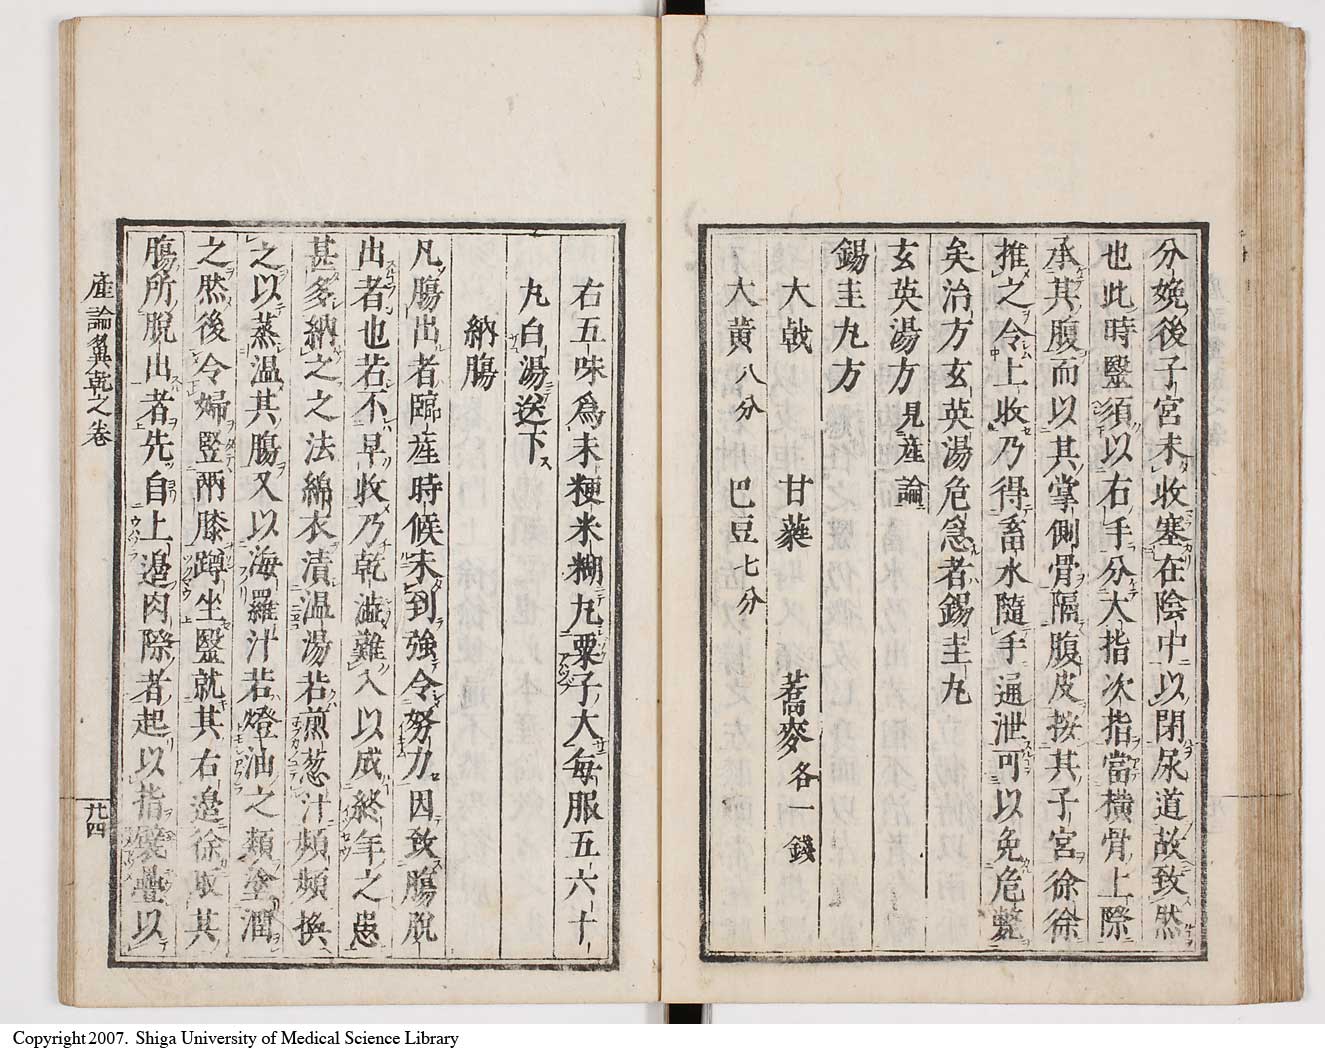 分娩後子宮未收塞在陰中以閉尿道故致然
也此時毉須以右手分大指次指當橫骨上際
承其腹而以其掌側骨隔腹皮按其子宮徐徐
推之令上收乃得畜水隨手通泄可以免危斃
矣治方玄英湯危急者錫圭丸
玄英湯方見産論
錫圭丸方
大戟 甘蕤 蕎麥各一錢
大黃八分 巴豆七分
右五味爲末粳米糊丸粟子大每服五六十
丸白湯送下
納膓
凡膓出者臨産時候未到強令努力因致膓脫
出者也若不早收乃乾澁難入以成終年之患
甚多納之之法綿衣漬温湯若煎葱汁頻頻換
之以蒸温其膓又以海羅汁若燈油之類塗潤
之然後令婦竪兩膝蹲坐毉就其右邉徐取其
膓所脫出者先自上邉肉際者起以指襞疊以
産論翼乾之卷
廿四
Copyright 2007. Shiga University of Medical Science Library